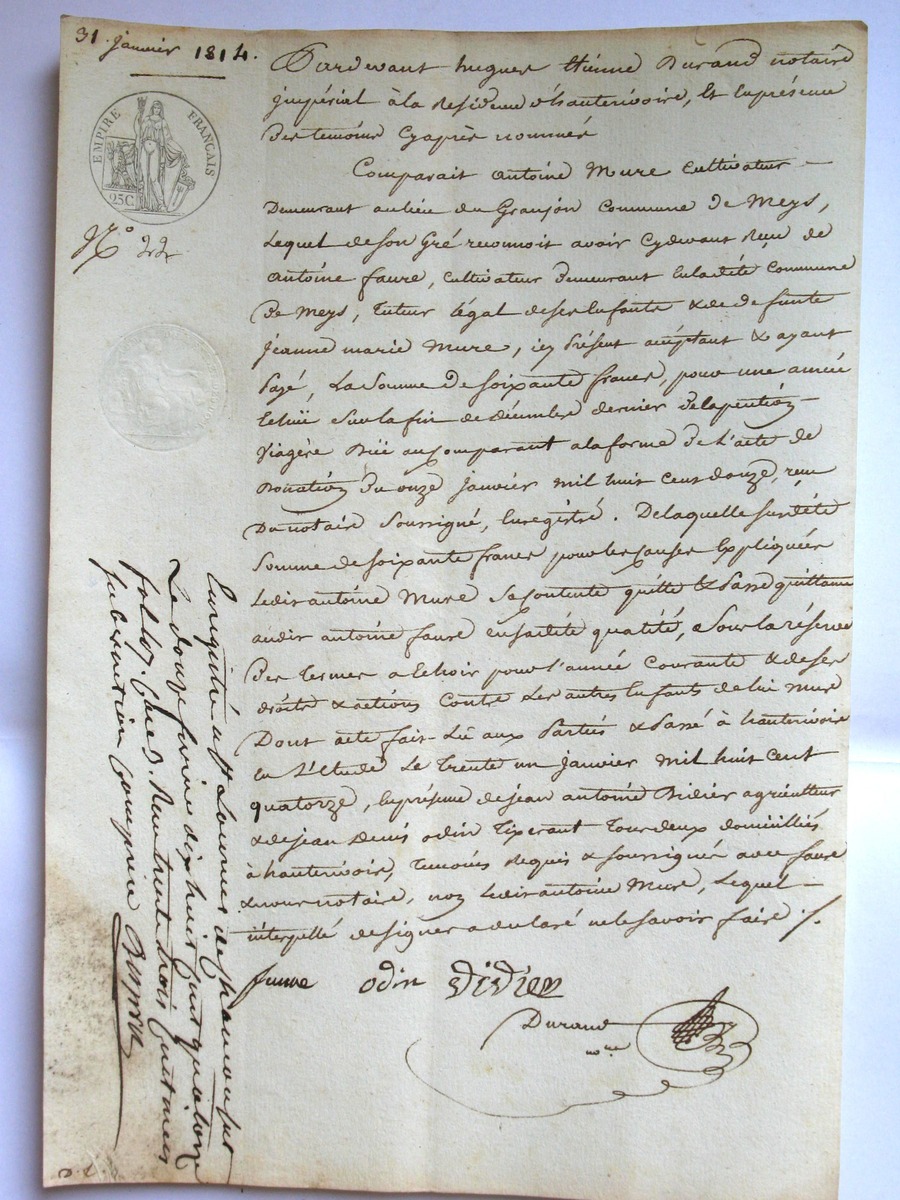 31. janvier 1814.
EMPIRE FRANÇAIS
25C
N.° 22
Pardevant hugues étienne Durand notaire
impérial à la Residence d'hauterivoire, Et En présence
des temoins Cyaprès nommés
Comparait antoine Mure Cultivateur —
Demeurant au lieu du Granjon Commune de Meys,
Lequel de Son Gré reconnoit avoir Cydevant Reçu de
antoine faure, Cultivateur demeurant En ladite Commune
de Meys, tuteur légal de ses Enfants & de defunte
jeanne marie Mure, icy Présent acceptant & ayant
Payé, La Somme de Soixante francs, pour une année
Echüe Sur la fin de décembre dernier de la pention
Viagère Düe au Comparant a la forme de L'acte de
Donation du onze janvier mil huit Cent douze, reçu
Du notaire Soussigné, Enregistré. De laquelle Susdite
Somme de Soixante francs pour les causes Expliquées
Ledit antoine Mure Se Contente quitte & Passe quittance
audit antoine faure en sadite qualité, Sous la réserve
Des termes a Echoir pour l'année Courante & de ses
droits & actions Contre Les autres Enfants de lui Mure
Dont acte fait Lu aux Parties & Passé à hauterivoire
En L'Etude Le trente un janvier mil huit Cent
quatorze, En présence de jean antoine Didier agriculteur
& de jean Denis odin tixerant tous deux domiciliés
à hauterivoire, temoins Requis & Soussignés avec faure
& nous notaire, non Ledit antoine Mure, Lequel —
interpellé de signer a declaré ne le savoir faire ./.
faure odin Didier
Durand
no.re
Enregistré a St Laurent de chamousset
Le douze fevrier dix huit cent quatorze
fol. C.e 3. Reçu trente trois centimes
subvention comprise